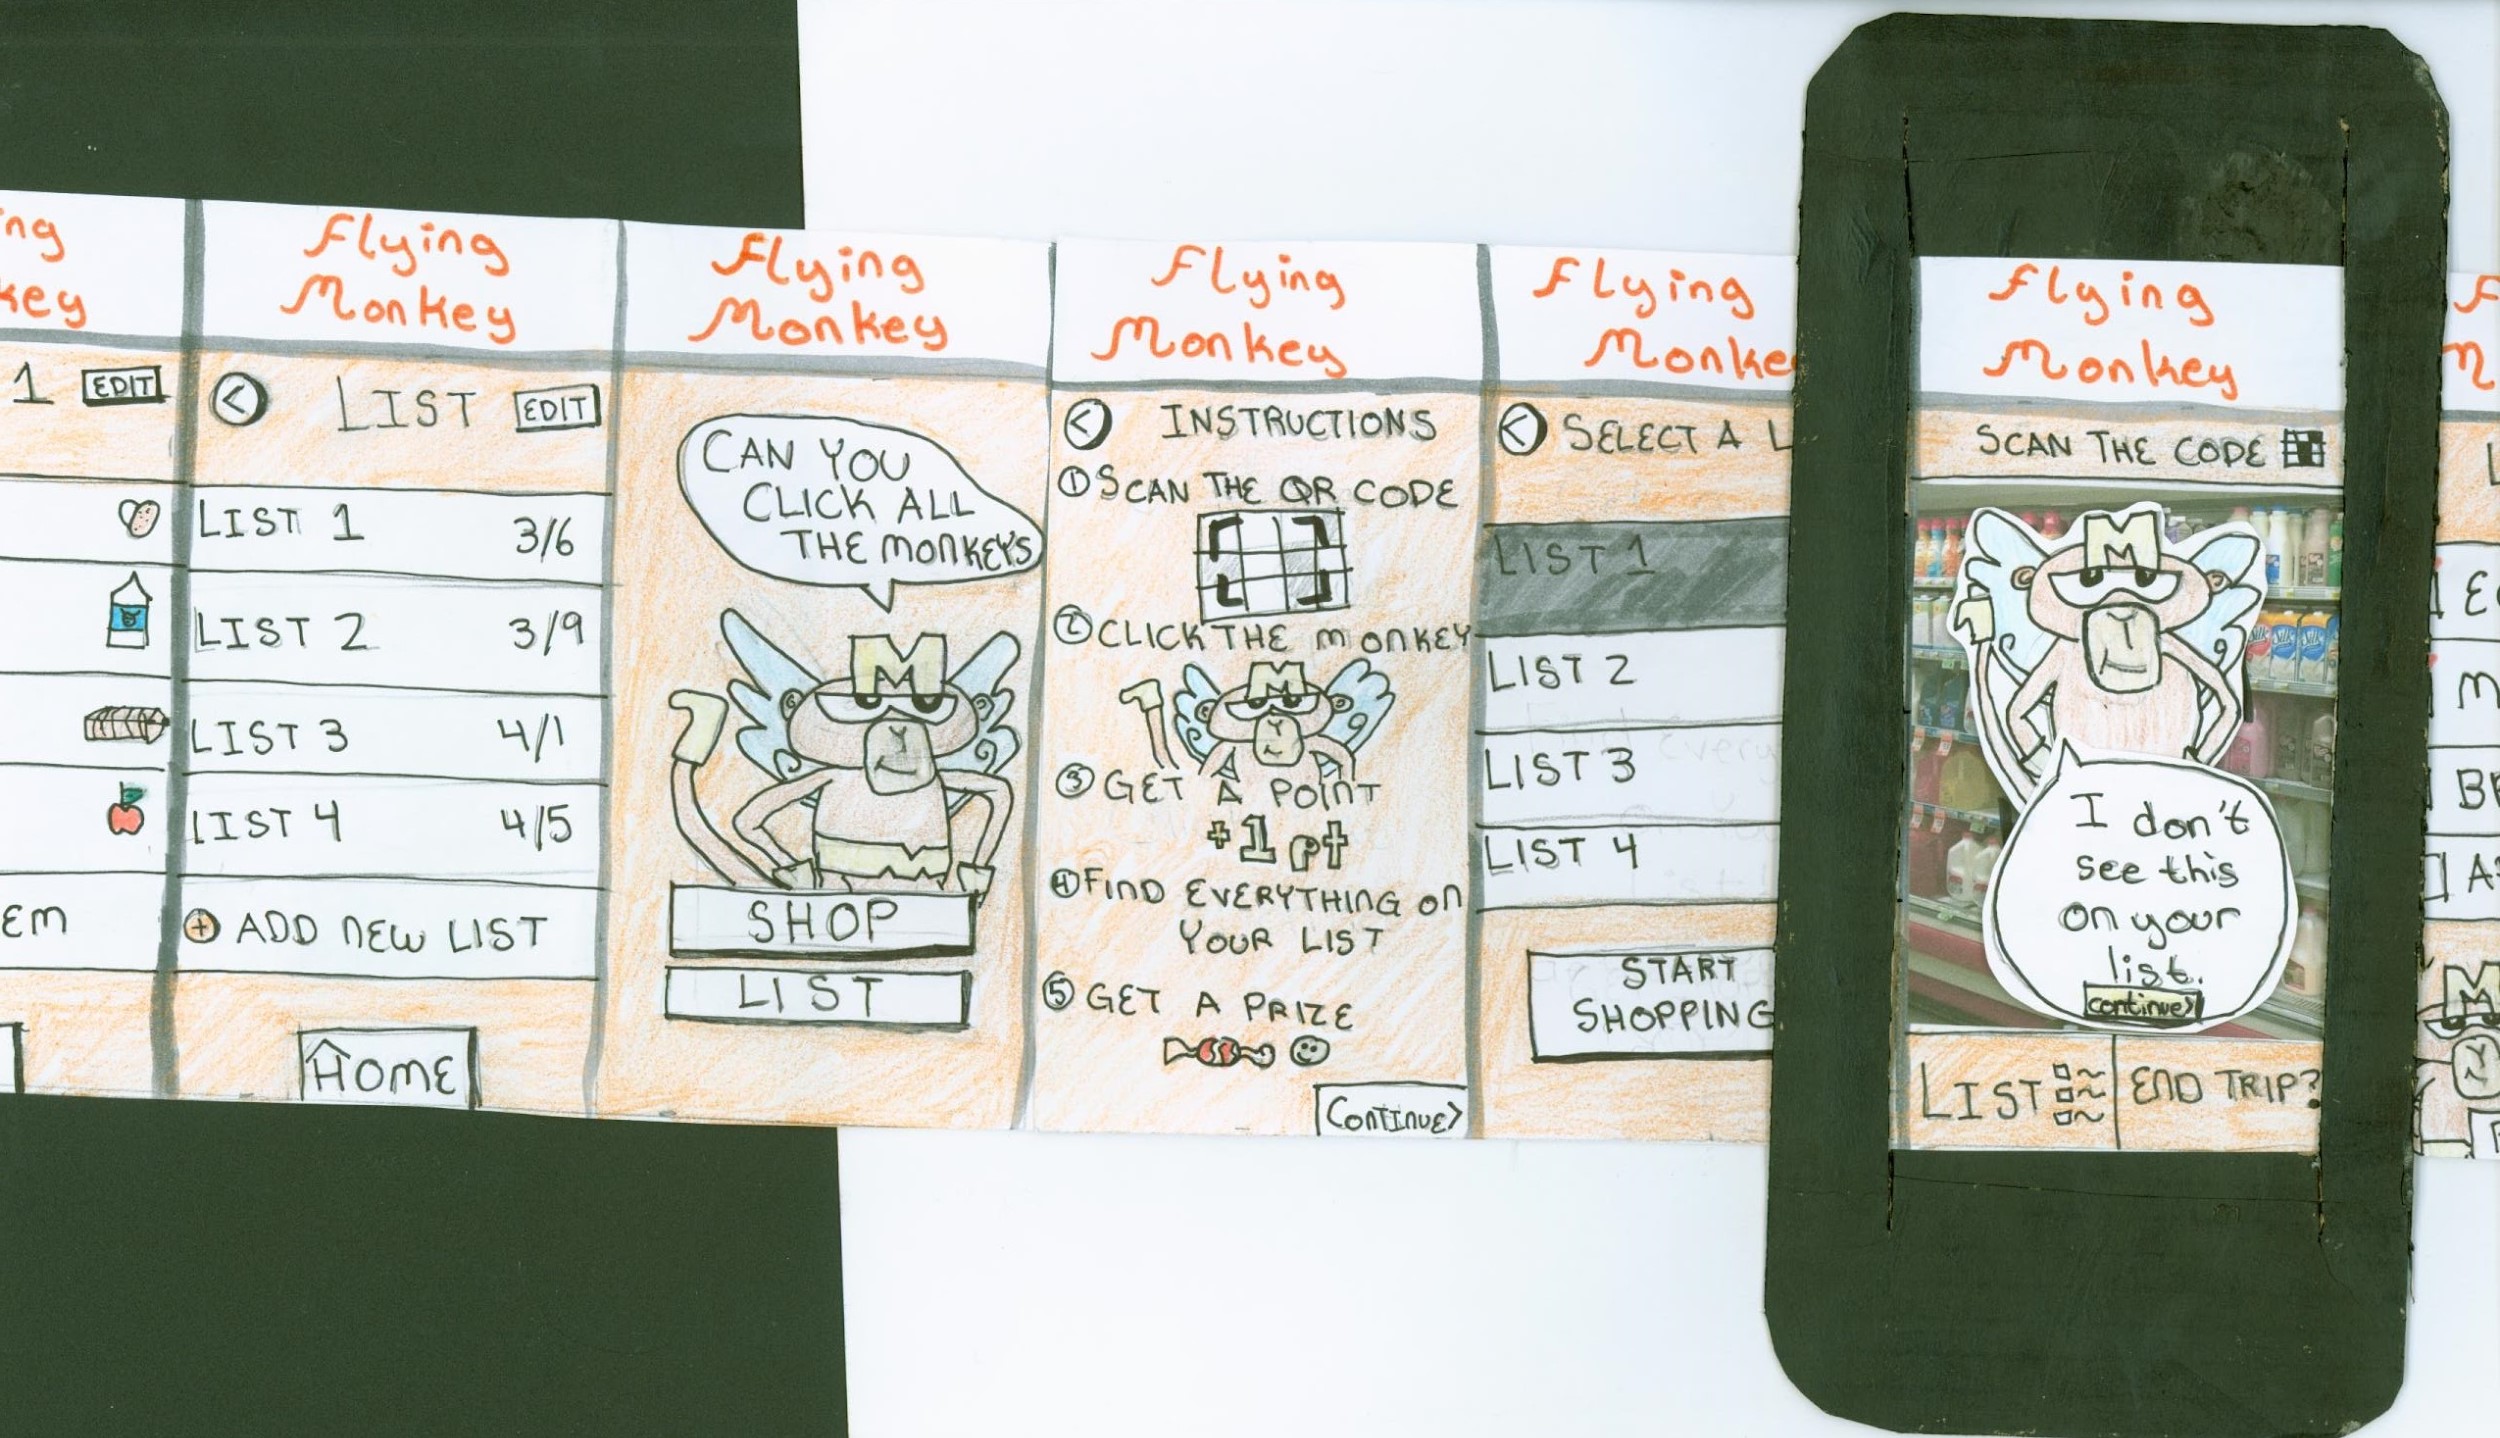 ng
key
1 EDIT
EM
Flying
Monkey
< LIST EDIT
LIST 1 3/6
LIST 2 3/9
LIST 3 4/1
LIST 4 4/5
+ ADD NEW LIST
HOME
Flying
Monkey
CAN YOU
CLICK ALL
THE MONKEY'S
M
SHOP
LIST
Flying
Monkey
< INSTRUCTIONS
1 SCAN THE QR CODE
2 CLICK THE MONKEY
M
3 GET A POINT
+1 pt
4 FIND EVERYTHING ON
YOUR LIST
5 GET A PRIZE
CONTINUE>
Flying
Monke
< SELECT A L
LIST 1
LIST 2
LIST 3
LIST 4
START
SHOPPING
Flying
Monkey
SCAN THE CODE
M
Silk Silk
I don't
see this
on your
list.
continue>
LIST
END TRIP?
F
M
L
M
A
M